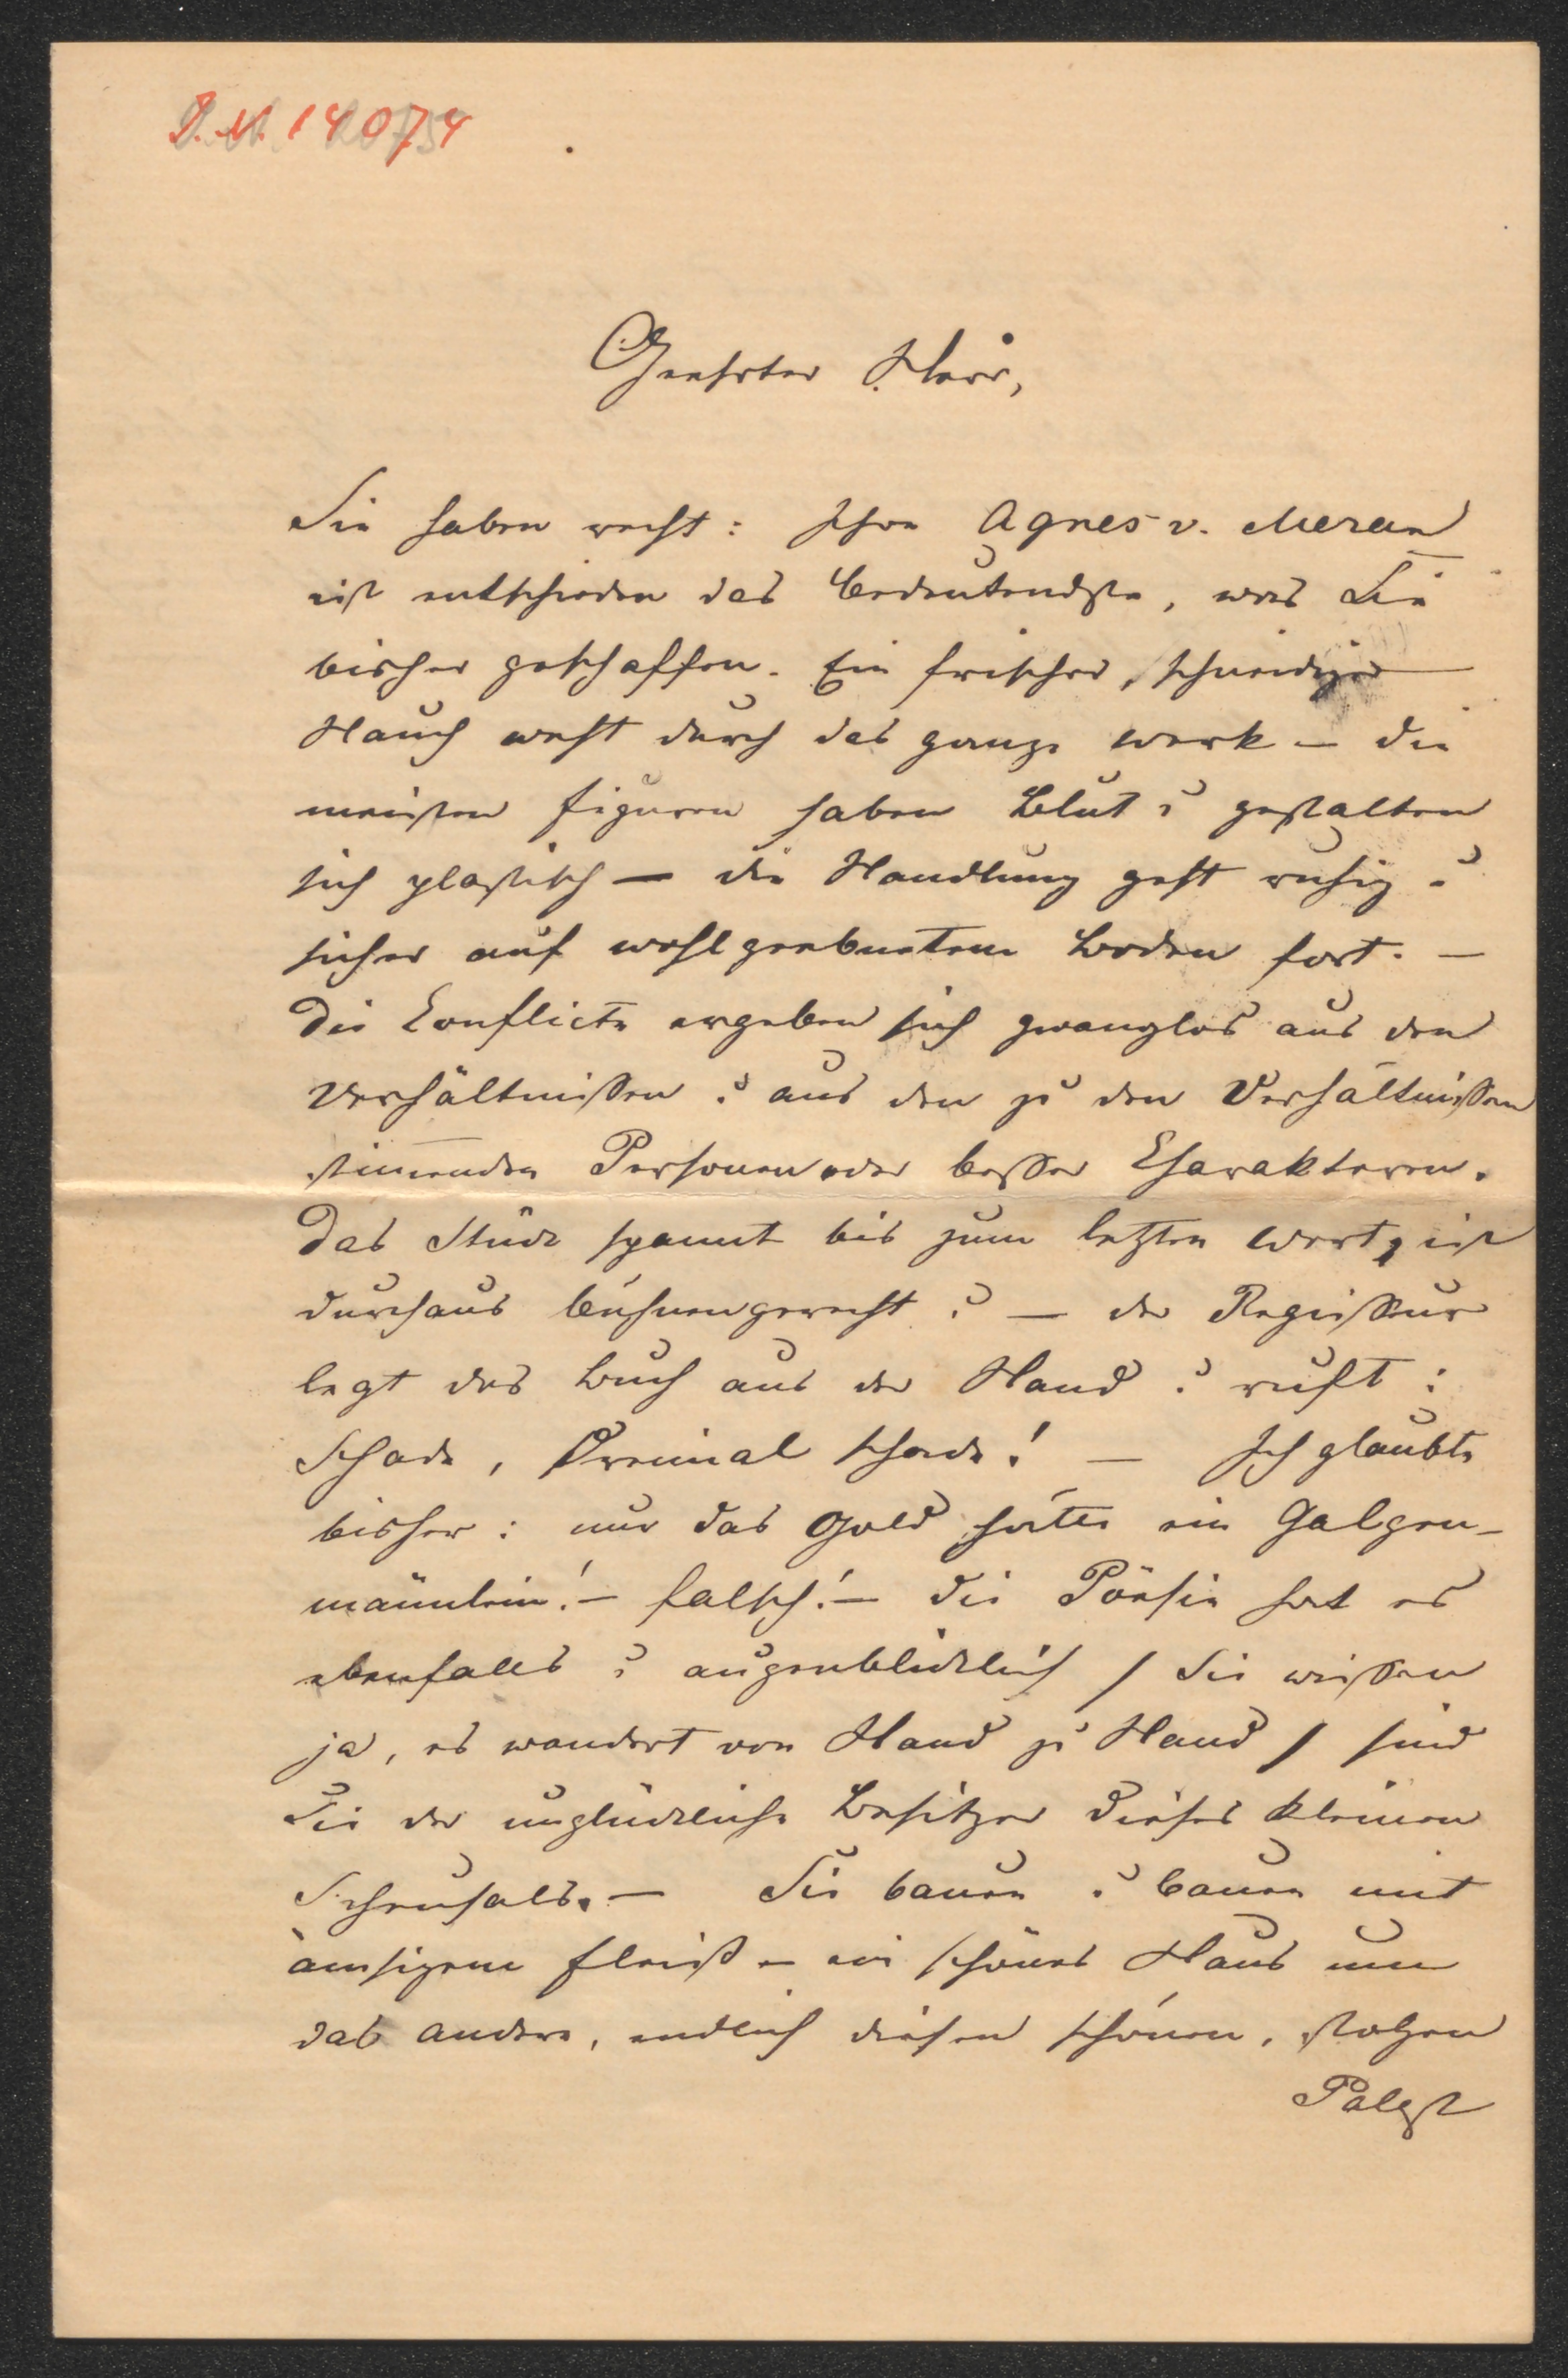 I.N. 14074
Geehrter Herr,
Sie haben recht: Ihre Agnes v. Meran
ist entschieden das Bedeutendste, was Sie
bisher geschaffen. Ein frischer, schneidiger
Hauch weht durch das ganze Werk – die
meisten Figuren haben Blut u gestalten
sich plastisch — die Handlung geht ruhig u
sicher auf wohlgeebnetem Boden fort. —
Die Conflicte ergeben sich zwanglos aus den
Verhältnißen u aus den zu den Verhältnißen
stimenden Personen oder beßer Charakteren.
Das Stück spannt bis zum letzten Wort, ist
durchaus bühnengerecht u — der Regißeur
legt das Buch aus der Hand u ruft:
Schade, dreimal schade! — Ich glaubte
bisher: nur das Gold hätte ein Galgen-
männlein! – falsch! – die Poësie hat es
ebenfalls u augenblicklich / Sie wißen
ja, es wandert von Hand zu Hand / sind
Sie der unglückliche Besitzer dieses kleinen
Scheusals. — Sie bauen u bauen mit
ämsigem Fleiß – ein schönes Haus um
das andere, endlich diesen schönen, stolzen
Palast